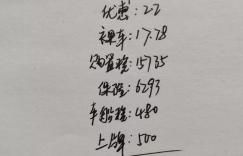 优惠：22
裸车：17.78
购置税：15735
保险：6293
车船税：480
上牌：500